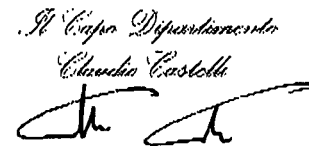 Il Capo Dipartimento
Claudio Castelli